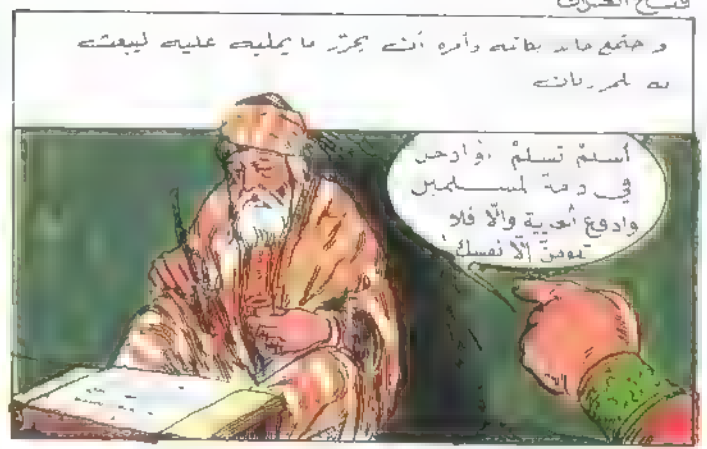 فتح العراق
و جتمع خالد بكاتبه وأمره أن يحرّر ما يمليه عليه ليبعث
به لهرمزان
أسلمْ تسلمْ ،أو ادخل
في ذمة لمسلمين
وادفع الجزية والّا فلا
تلومنّ إلّا نفسك !